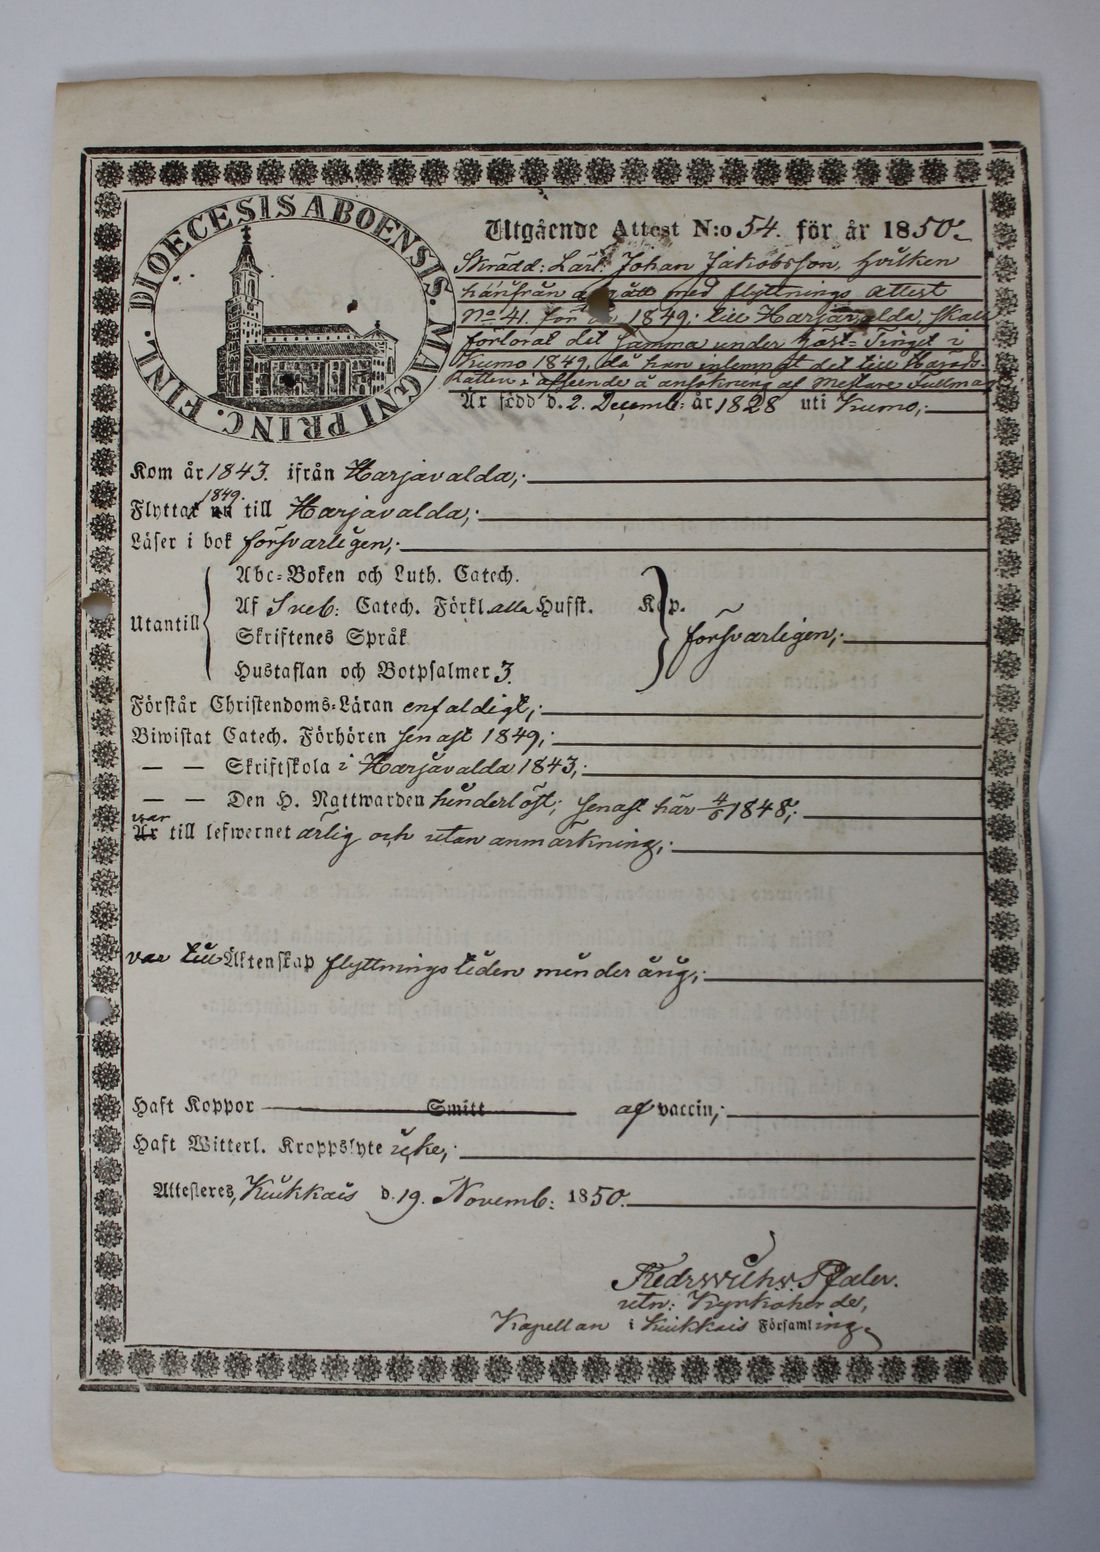 DIOECESIS ABOENSIS. MAGNI PRINC. FINL.
Utgående Attest N:o 54. för år 1850.
Skrädd: Lärl. Johan Jakobsson, hvilken
härifrån afgått med flyttnings attest
No 41. för 1849, till Harjavalda, skall
förlorat det samma under höst-Tinget i
Kumo 1849, då han inlemnat det till Härads-
Rätten i afseende å ansökning af Mästare
Är född d. 2. Decemb: år 1828 uti Kumo;
Kom år 1843. ifrån Harjavalda;
1849.
Flyttat nu till Harjavalda;
Läser i bok försvarligen;
Utantill
Abc-Boken och Luth. Catech.
Af Sveb: Catech. Förkl. alla Hufst. Kap.
Skriftenes Språk
Hustaflan och Botpsalmer 3.
försvarligen;
Förstår Christendoms-Läran enfaldigt;
Biwistat Catech. Förhören senast 1849;
— — Skriftskola i Harjavalda 1843;
— — Den H. Nattwarden hinderlöst; senast här 4/6 1848;
var
Är till lefwernet ärlig och utan anmärkning;
var till Äktenskap flyttningstiden minderårig;
Haft Koppor Smitt af vaccin;
Haft Witterl. Kroppslyte icke;
Attesteres, Kiukkais d. 19. Novemb: 1850.
Kyrkoherde,
Kapellan i Kiukkais Församling.